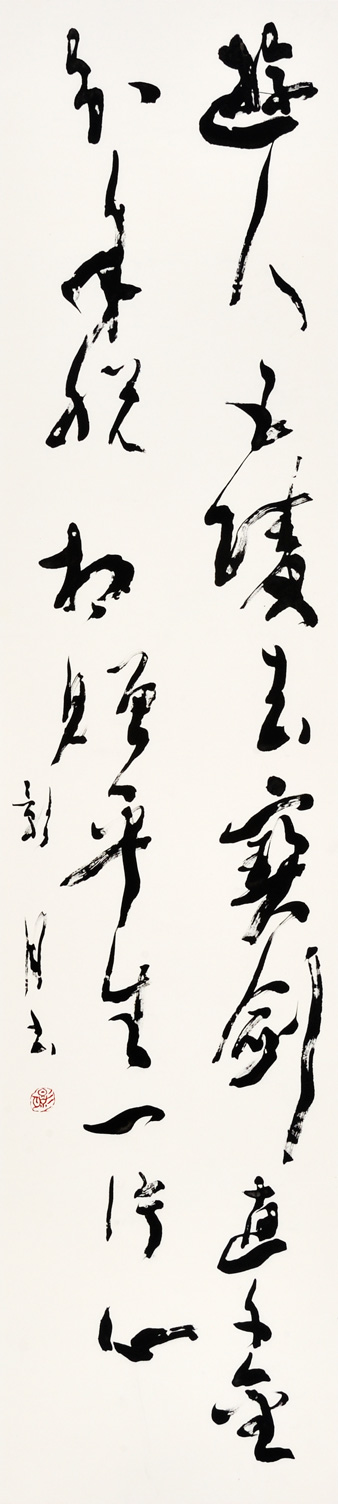 遊人五陵去寶劍直千金
分手脱相贈平生一片心
月书